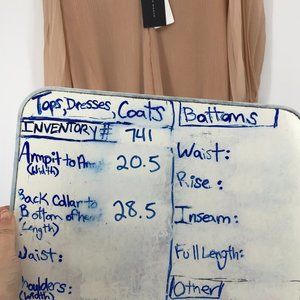 Tops, Dresses, Coats
INVENTORY# 741
Armpit to Arm
(Width)
20.5
Back Collar to
Bottom of hem
(Length)
28.5
Waist:
Shoulders:
(Width)
Bottoms
Waist:
Rise:
Inseam:
Full Length:
Other